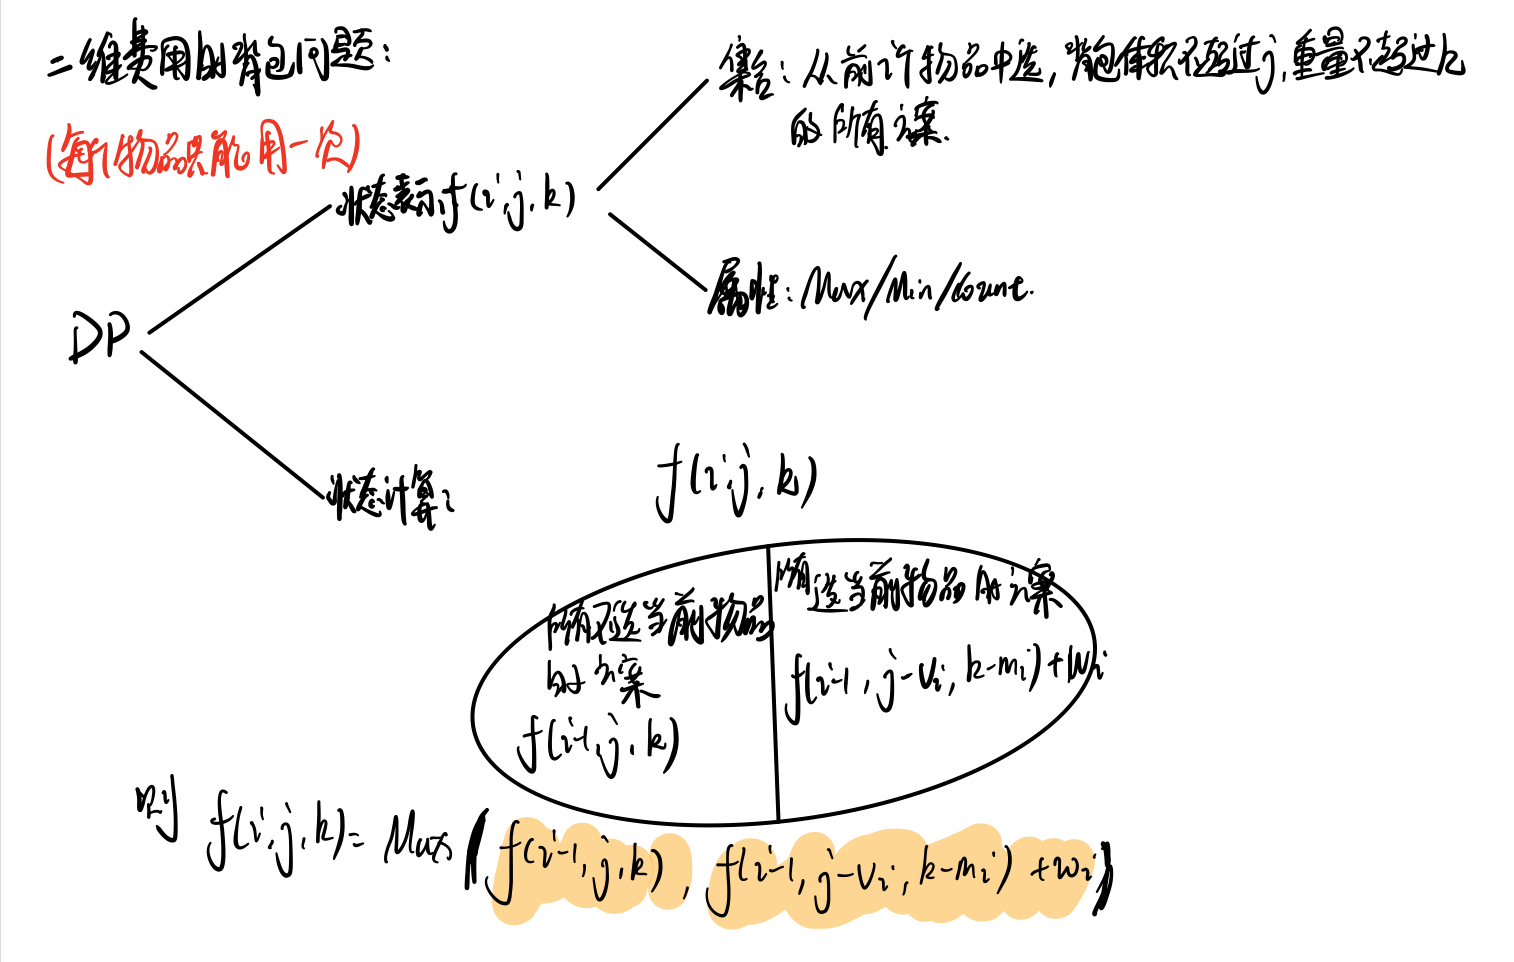 二维费用的背包问题:
(每个物品只能用一次)
集合: 从前i个物品中选, 背包体积不超过j, 重量不超过k
的所有方案.
状态表示f(i,j,k)
属性: Max/Min/count.
DP
状态计算:
f(i,j,k)
所有不选当前物品
的方案
f(i-1,j,k)
所有选当前物品的方案
f(i-1, j-vi, k-mi)+wi
则 f(i,j,k)= Max(f(i-1,j,k), f(i-1, j-vi, k-mi) +wi)